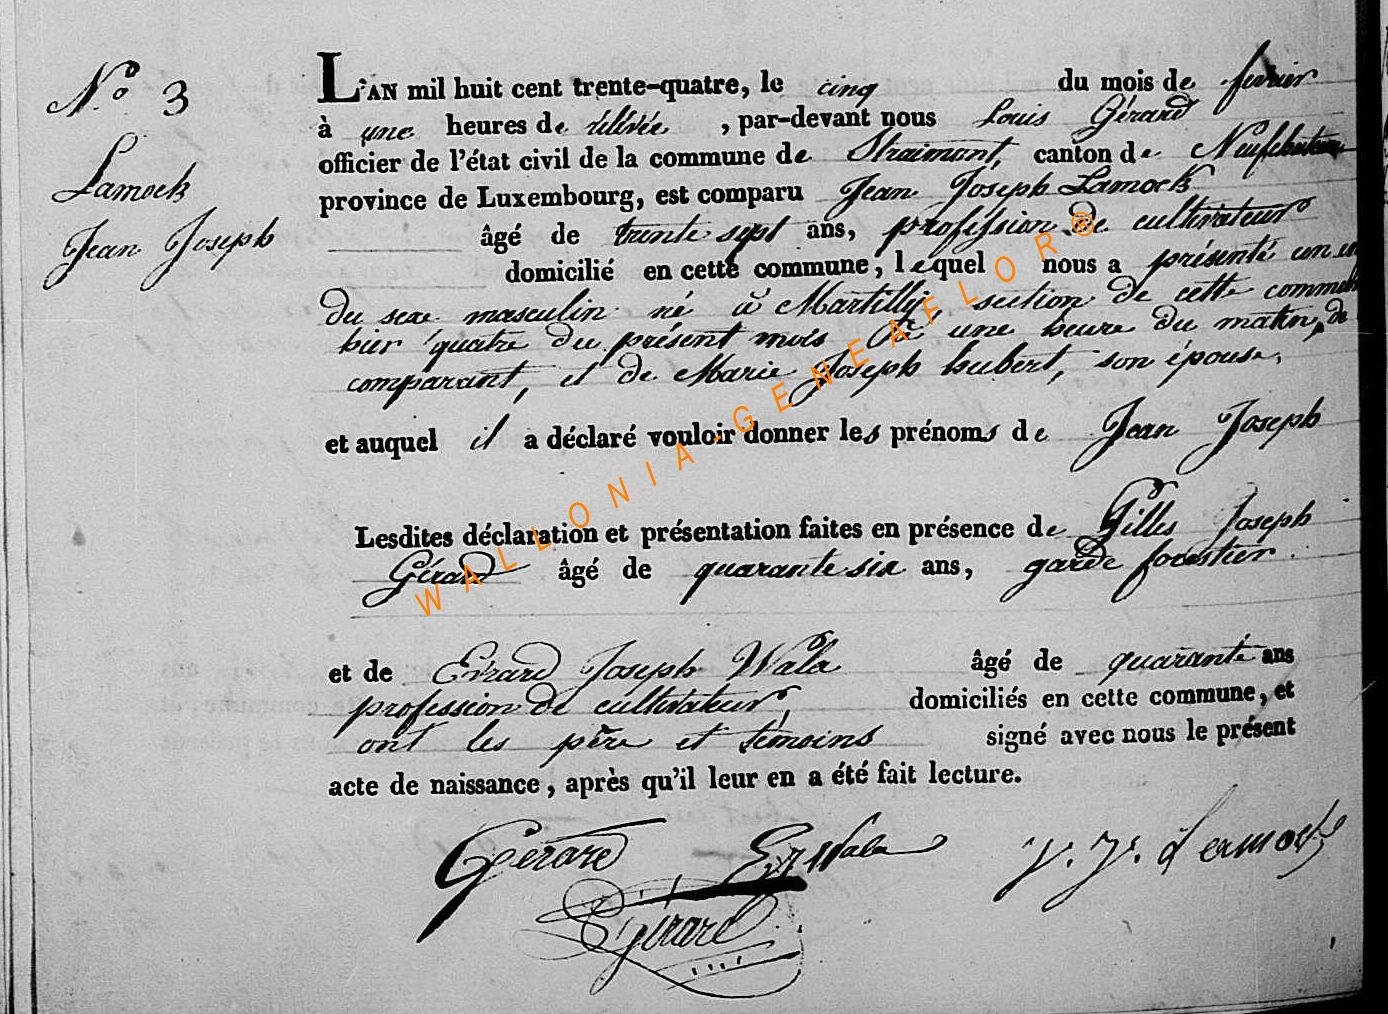 N.o 3
Lamock
Jean Joseph
L'AN mil huit cent trente-quatre, le cinq du mois de février
à une heures de relevée, par-devant nous Louis Gérard
officier de l'état civil de la commune de Straimont, canton de Neufchateau
province de Luxembourg, est comparu Jean Joseph Lamock
âgé de trente sept ans, profession de cultivateur
domicilié en cette commune, lequel nous a présenté un
du sexe masculin né à Martilly, section de cette commune
hier quatre du présent mois à une heure du matin, de
comparant, et de Marie Joseph hubert, son épouse,
et auquel il a déclaré vouloir donner les prénoms de Jean Joseph
Lesdites déclaration et présentation faites en présence de Gilles Joseph
Gérard âgé de quarante six ans, garde forestier.
et de Evrard Joseph Wala âgé de quarante ans
profession de cultivateur, domiciliés en cette commune, et
ont les père et témoins signé avec nous le présent
acte de naissance, après qu'il leur en a été fait lecture.
Gérard Ev Wala J. J. Lamock
Gérard
WALLONIA-GENEAFLOR®